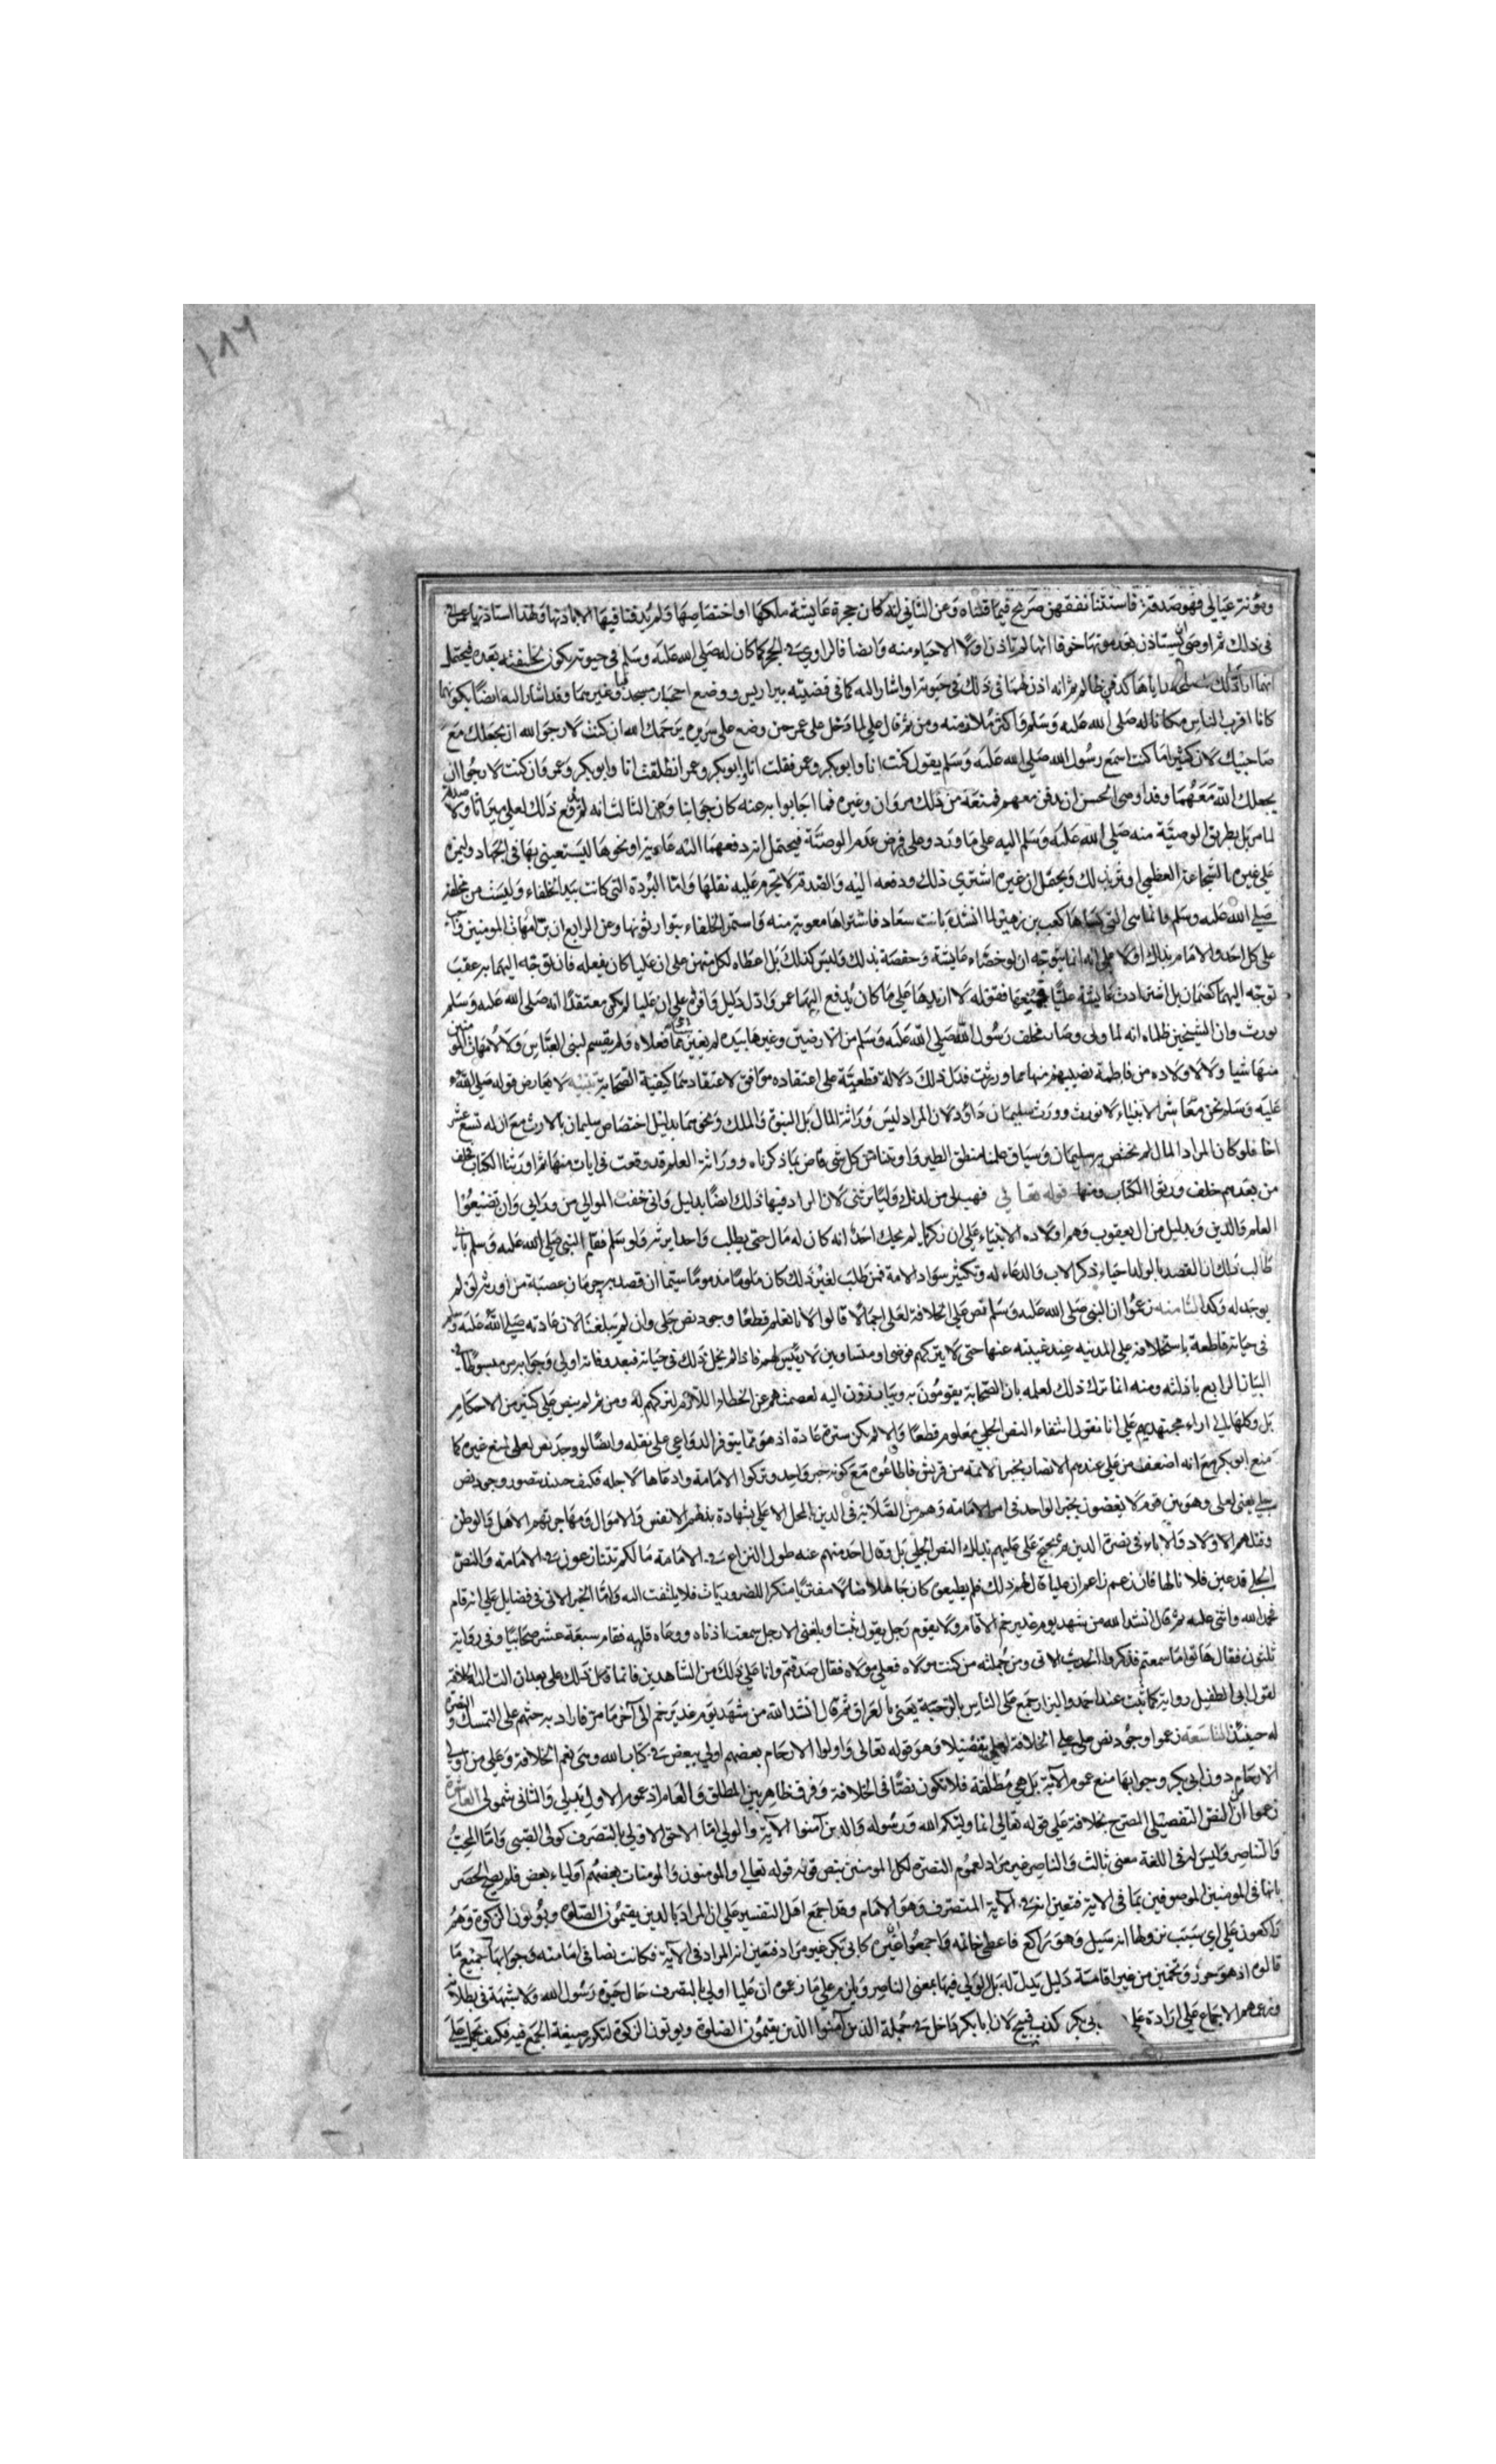 ومؤنة عيالي فهو صدقة فاستثنا نفقتهن صريح فيما قلناه وعن الثاني انه كان حجرة عايشة ملكها او اختصاصها ولم يدفنا فيها الا باذنها ولهذا استاذنها عمر
في ذلك ثم اوصى ان يستاذن بعد موتها خوفا انها لم تاذن اولا الا حياء منه وايضا فالراوي الحجر كما كان له صلى الله عليه وسلم في حيوته يكون لخليفته بعده فيحتمل
انهما اذن لهما في ذلك في حيوته او اشار اليه كما في قضيته بير اريس ووضع احجار مسجد قبا وغيرهما وقد اشار اليه ايضا بكونهما
كانا اقرب الناس مكانا له صلى الله عليه وسلم واكثر ملازمته ومن ثم قال علي لما دخل على عمر حين وضع على سريره يرحمك الله ان كنت لارجو الله ان يجعلك مع
صاحبيك لان كثيرا ما كنت اسمع رسول الله صلى الله عليه وسلم يقول كنت انا وابوبكر وعمر فقلت انا وابوبكر وعمر انطلقت انا وابوبكر وعمر وان كنت لارجو ان
يجعلك الله معهما وقد اوصى الحسن ان يدفن معهم فمنعه من ذلك مروان وغيره فما اجابوا به عنه كان جوابنا وعن الثالث انه لم يدفع ذلك لعلي ميراثا ولا صدقة
لما مر بل بطريق الوصية منه صلى الله عليه وسلم اليه على ما ورد وعلى فرض عدم الوصية فيحتمل انه دفعهما اليه عارية او نحوها ليستعين بها في الجهاد وليميزه
على غيره بالشجاعة العظمى اوثر بذلك ويحتمل ان غيره اشترى ذلك ودفعه اليه والصدقة لا يحرم عليه نقلها واما البردة التي كانت بيد الخلفاء وليست من مخلفه
صلى الله عليه وسلم وانما هي التي كساها كعب بن زهير لما انشد بانت سعاد فاشتراها معوية منه واستمر الخلفاء يتوارثونها وعن الرابع ان بر امهات المومنين واجب
على كل احد والامام بذلك اولا على انه انما يتوجه ان لو خصاء عايشة وحفصة بذلك وليس كذلك بل اعطاه لكل منهن على ان عليا كان يفعله فان توجه اليهما به عتب
توجه اليهما كعثمان بل اشتهادت عايشة عليا فقوله لا ازيدها على ما كان يدفع اليها عمر وادل دليل واقواه على ان عليا لم يكن معتقدا انه صلى الله عليه وسلم
يورث وان الشيخين ظلماه انه لما ولى وصار مخلف رسول الله صلى الله عليه وسلم من الارضين وغيرها بيده لم يغير شيئا مما فعلاه ولم يقسم لبني العباس ولا لامهات المومنين
منها شيا ولا لاولاده من فاطمة نصيبهم منها مما ورثت فدل ذلك دلالة قطعية على اعتقاده موافق لاعتقادهما كبقية الصحابة تنبيه لا يعارض قوله صلى الله
عليه وسلم نحن معاشر الانبياء لا نورث وورث سليمان داود لان المراد ليس وراثة المال بل النبوة والملك ونحوهما بدليل اختصاص سليمان بالارث مع ان له تسع عشر
اخا فلو كان المراد المال لم يختص به سليمان وسياق علمنا منطق الطير واوتينا من كل شي قاض بما ذكرناه ووراثة العلم قد وقعت في ايات منها ثم اورثنا الكتاب فخلف
من بعدهم خلف ورثوا الكتاب ومنها قوله تعالى فهب لي من لدنك وليا يرثني لان المراد فيها ذلك ايضا بدليل واني خفت الموالي من ورائي وان تضيعوا
العلم والدين وبدليل من ال يعقوب وهم اولاده الانبياء على ان زكريا لم يحك احد انه كان له مال حتى يطلب ولدا يرثه ولو سلم فمقام النبي صلى الله عليه وسلم يابى
طالب ذلك اذ القصد بالولد احياء ذكر الاب والدعاء له وتكثير سواد الامة فمن طلب لغير ذلك كان ملوما مذموما سيما ان قصد به حرمان عصبته من ارثه لو لم
يوجد له ولد الثامنة زعموا ان النبي صلى الله عليه وسلم نص على الخلافة لعلي اجمالا قالوا لانا نعلم قطعا وجود نص جلي وان لم يبلغنا لان عادته صلى الله عليه وسلم
في حياته قاطعة باستخلافه على المدينة عند غيبته عنها حتى لا يتركهم فوضى او متساوين لا رئيس لهم فاذا لم يخل بذلك في حياته فبعد وفاته اولى وجوابه مر مبسوطا في
البيان الرابع باذلته ومنه انما ترك ذلك لعلمه بان الصحابة يقومون به ويبادرون اليه لعصمتهم عن الخطاء اللازم لتركهم له ومن ثم لم ينص على كثير من الاحكام
بل وكلها الى اراء مجتهديهم على انا نقول انتفاء النص الجلي معلوم قطعا والا لم يكن ستره عادة اذ هو مما يتوفر الدواعي على نقله وايضا لو وجد نص لعلي لمنع غيره كما
منع ابوبكر مع انه اضعف من علي عندهم الانصار بخبر الائمة من قريش فاطاعوه مع كونه خبر واحد وتركوا الامامة وادعاها لاجله فكيف حينئذ يتصور وجود نص
جلي يعني لعلي وهو بين قوم لا يعصون بخبر الواحد في امر الامامة وهم من الصلابة في الدين بالمحل الاعلى بشهادة بذلهم الانفس والاموال ومهاجرتهم الاهل والوطن
وقتلهم الاولاد والاباء في نصرة الدين ثم لا يحتج علي عليهم بذلك النص الجلي بل وقال احد منهم عند طول النزاع في الامامة ما لكم تتنازعون في الامامة والنص
الجلي قد عين فلانا لها فان زعم زاعم ان عليا قال لهم ذلك فلم يطيعوه كان جاهلا ضالا مفتريا منكرا للضروريات فلا يلتفت اليه واما الخبر الاتي في فضايل علي انه قام
فحمد الله واثنى عليه ثم قال انشد الله من شهد يوم غدير خم الا قام ولا يقوم رجل يقول نبئت او بلغني الا رجل سمعت اذناه ووعاه قلبه فقام سبعة عشر صحابيا وفي رواية
ثلثون فقال هاتوا ما سمعتم فذكروا الحديث الاتي ومن جملته من كنت مولاه فعلي مولاه فقال صدقتم وانا على ذلك من الشاهدين فانما قال ذلك علي بعد ان الت اليه الخلافة
لقول ابي الطفيل روايه كما ثبت عند احمد والبزار جمع علي الناس بالرحبة يعني بالعراق ثم قال انشد الله من شهد يوم غدير خم الى آخر ما مر فاراد به حثهم على التمسك والنصرة
له حينئذ التاسعة زعموا وجود نص على الخلافة لعلي تفصيلا وهو قوله تعالى واولوا الارحام بعضهم اولى ببعض في كتاب الله وهي تعم الخلافة وعلي من اولي
الارحام دون ابي بكر وجوابها منع عموم الآية بل هي مطلقة فلا تكون نصا في الخلافة وفرق ظاهر بين المطلق والعام اذ عموم الاول بدلي والثاني شمولي العاشرة
زعموا ان النص التفصيلي المصرح بخلافة علي قوله تعالى انما وليكم الله ورسوله والذين آمنوا الآية والولي اما الاحق الاولى بالتصرف كولى الصبى واما المحب
والناصر وليس له في اللغة معنى ثالث والناصر غير مراد لعموم النصرة لكل المومنين بنص قوله تعالى والمومنون والمومنات بعضهم اولياء بعض فلم يصح الحصر
بانما في المومنين الموصوفين بما في الاية فتعين انه في الآية المتصرف وهو الامام وقد اجمع اهل التفسير على ان المراد بالذين يقيمون الصلوة ويؤتون الزكوة وهم
راكعون علي اي سبب نزولها انه سيل وهو راكع فاعطى خاتمه واجمعوا ان غيره كابي بكر غير مراد فتعين انه المراد في الآية فكانت نصا في امامته وجوابها منع جميع ما
قالوه اذ هو حزر وتخمين من غير اقامة دليل يدل له بل الولي فيها بمعنى الناصر ويلزم على ما زعموه ان عليا اولى بالتصرف حال حيوة رسول الله ولا شبهة في بطلانه
وزعمهم الاجماع على ارادة علي ابي بكر كذب قبيح لان ابا بكر داخل في جملة الذين آمنوا الذين يقيمون الصلوة ويوتون الزكوة لتكرر صيغة الجمع فيه فكيف يحمل على